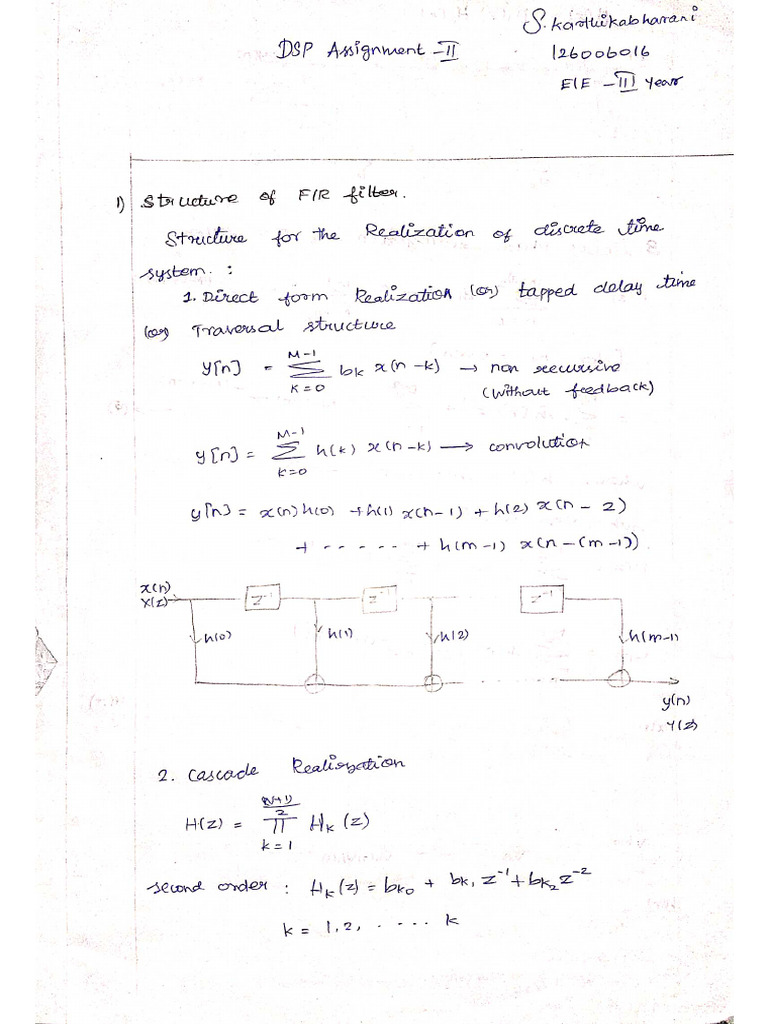 S. Karthikabharani
DSP Assignment -II
126006016
EIE - III year
1) Structure of FIR filter.
Structure for the Realization of discrete time
system. :
1. Direct form Realization (or) tapped delay time
(or) Traversal structure
y[n] = M-1 Σ k=0 bk x(n-k) → non recursive
(without feedback)
y[n] = M-1 Σ k=0 h(k) x(n-k) → convolution
y[n] = x(n) h(0) + h(1) x(n-1) + h(2) x(n-2)
+ - - - - - + h(m-1) x(n-(m-1))
x(n)
X(z)
z⁻¹ z⁻¹ z⁻¹
h(0) h(1) h(2) h(m-1)
y(n)
Y(z)
2. Cascade Realisation
H(z) = 2 π k=1 Hk(z)
second order : Hk(z) = bk0 + bk1 z⁻¹ + bk2 z⁻²
k = 1, 2, . - . . . k